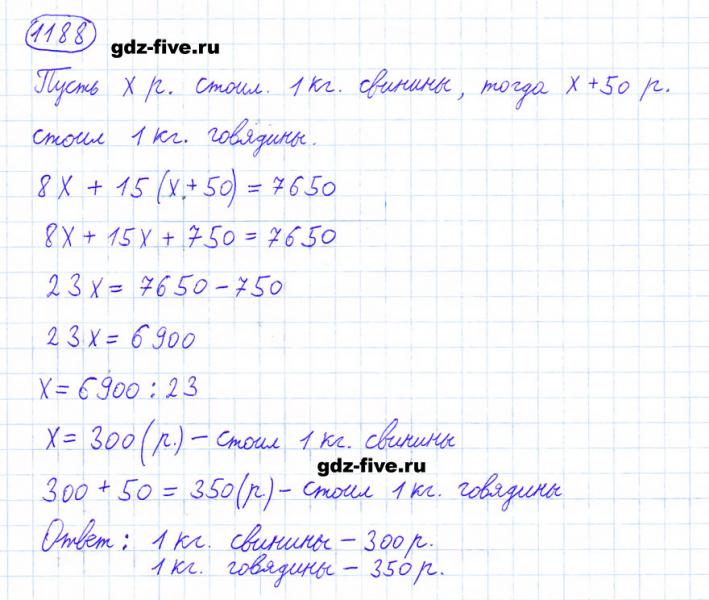 1188
gdz-five.ru
Пусть х р. стоил. 1 кг. свинины, тогда х + 50 р.
стоил 1 кг. говядины.
8х + 15 (х + 50) = 7650
8х + 15х + 750 = 7650
23х = 7650 - 750
23х = 6900
х = 6900 : 23
х = 300 (р.) - стоил 1 кг. свинины
gdz-five.ru
300 + 50 = 350 (р) - стоил 1 кг. говядины
Ответ: 1 кг. свинины - 300 р.
1 кг. говядины - 350 р.